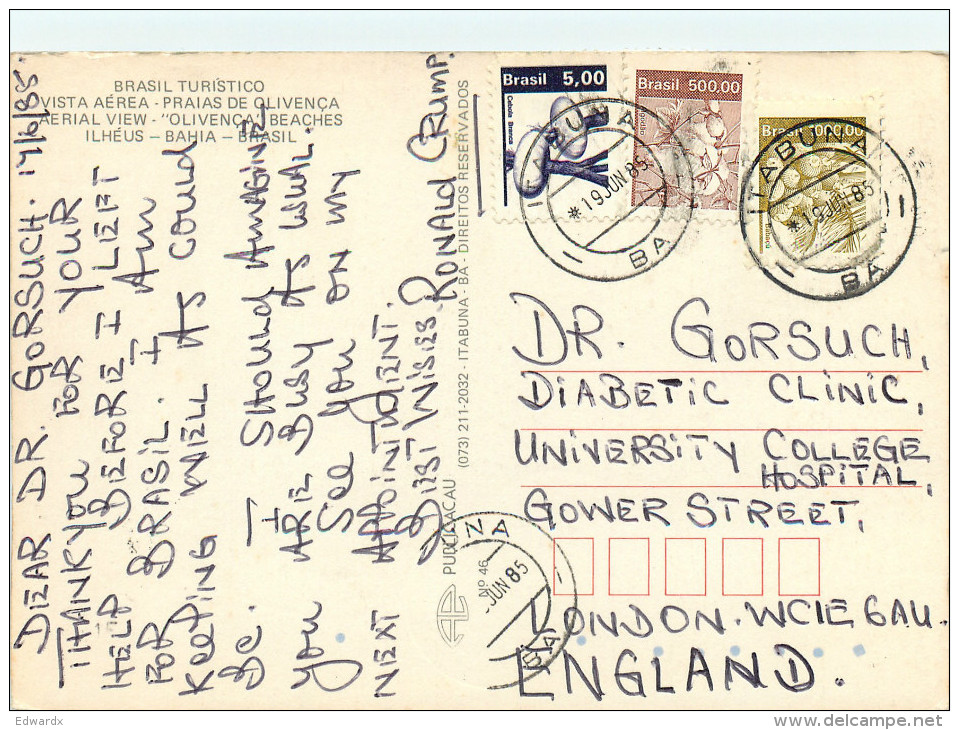 BRASIL TURÍSTICO
VISTA AÉREA - PRAIAS DE OLIVENÇA
AERIAL VIEW - "OLIVENÇA" BEACHES
ILHÉUS - BAHIA - BRASIL
DEAR DR. GORSUCH. 17/6/85.
THANKYOU FOR YOUR
HELP BEFORE I LEFT
FOR BRASIL. I AM
KEEPING WELL AS COULD
BE. I SHOULD AMAGINE
YOU ARE BUSY AS USUAL.
SEE YOU ON MY
NEXT APPOINTMENT.
BEST WISHES RONALD CRUMP.
Nº 46 PUBLICACAU (073) 211-2032 - ITABUNA - BA - DIREITOS RESERVADOS
Brasil 5,00
Cebola Branca
Brasil 500,00
Algodão
Brasil 1000,00
Babaçu
ITABUNA
*19 JUN 85
BA
ITABUNA
*19 JUN 85
BA
UNA
JUN 85
BA
DR. GORSUCH,
DIABETIC CLINIC,
UNIVERSITY COLLEGE
HOSPITAL,
GOWER STREET,
LONDON. WC1E 6AU.
ENGLAND.
Edwardx
www.delcampe.net